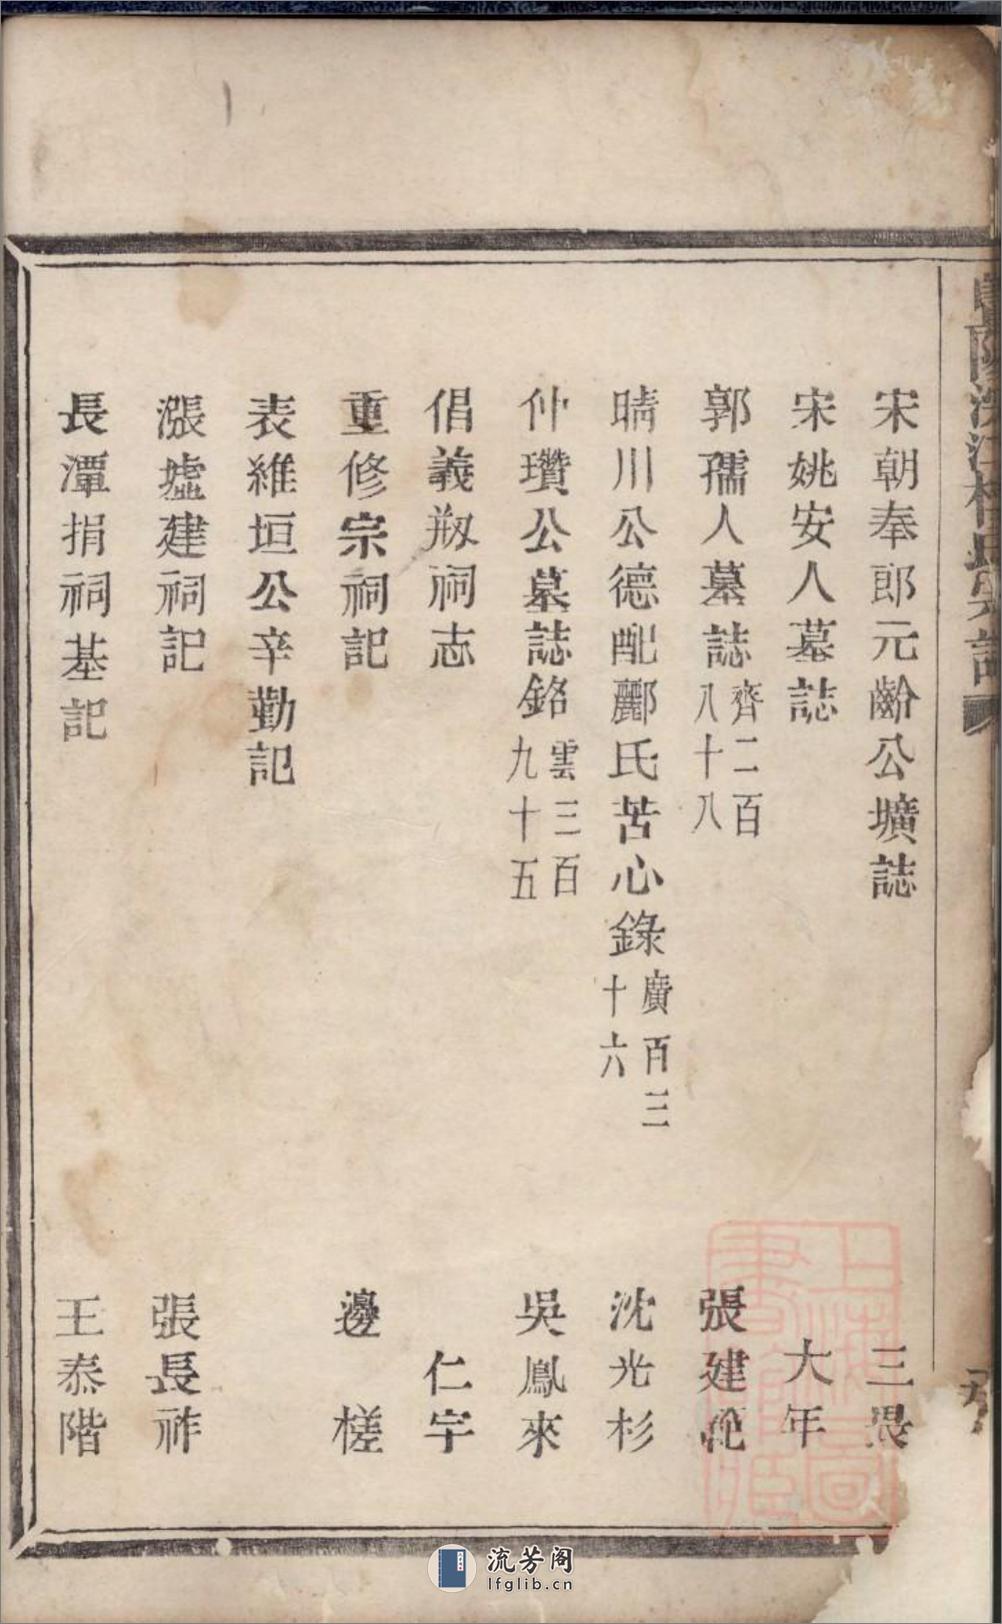 宋朝奉郎元齡公壙誌 三畏
宋姚安人墓誌 大年
郭孺人墓誌 齊二百八十八 張建
晴川公德配酈氏苦心錄 廣百三十六 沈光杉
仲瓚公墓誌銘 雲三百九十五 吳鳳來
倡義剏祠志 仁宇
重修宗祠記 邊槎
表維垣公辛勤記
漲墟建祠記 張長祚
長潭捐祠基記 王泰階
上海圖書館
流芳阁
lfglib.cn